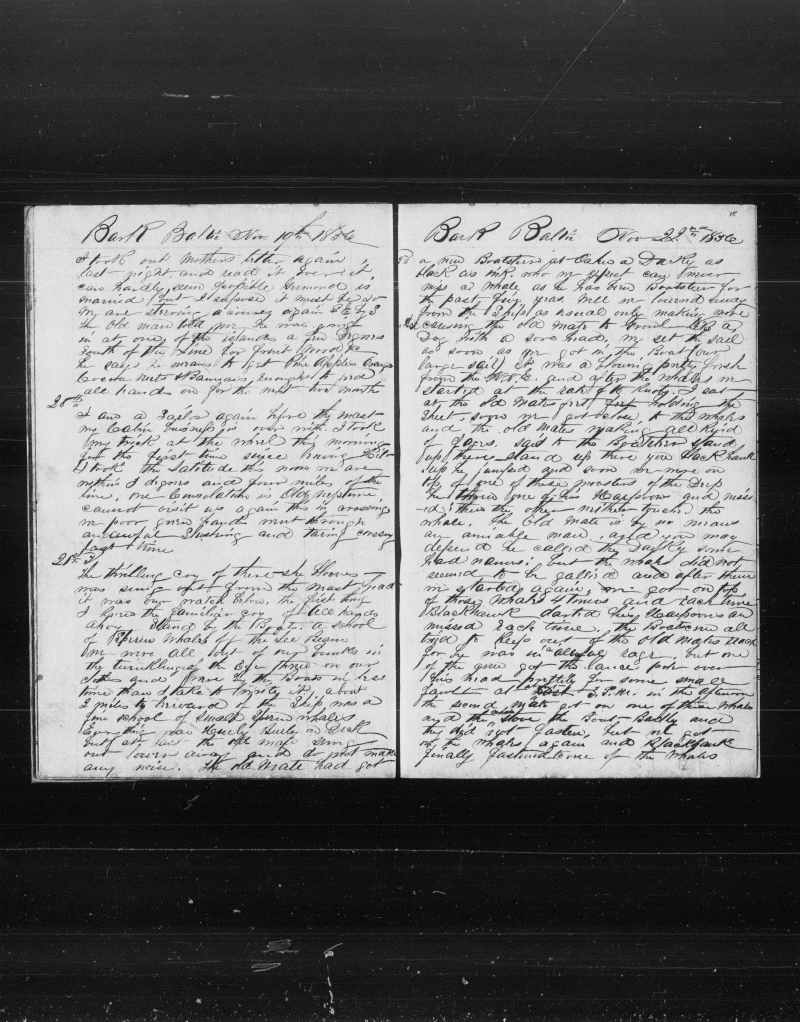 Bark Baltic Nov 19th 1856
I took out Mothers letter again
last night and read it over it
can hardly seem possible is
married but I suppose it must be so
We are steering a course again S E by S
The old man told me he was going
in at one of the islands a few Degrees
South of the Line for fruit wood &c
he says he means to get Pine Apples
Cocoa Nuts & Bananas enough to feed
all hands on for the next two month
20th
I am a Sailor again before the mast
my Cabin business is over with. I took
my trick at the wheel this morning
for the first time since leaving Hilo
I took the Latitude this noon we are
within 2 degrees and four miles of the
line, one Consolation is Old Neptune
cannot visit us again this in crossing
we poor green hands went through
an awful Ducking and taring crossing
last time
21st
The thrilling cry of there she blows
was sung out from the Mast head
it was our watch below, the first thing
I heard the familiar cry of all hands
ahoy Stand by the Boats. a school
of Sperm Whales off the Lee Beam
We were all out of our bunks in
the twinkling of the Eye threw on our
and were by the Boats in less
time than I take to write it, about
2 miles to leeward of the Ship was a
fine school of small sperm whales
Everything was Hurly Burly on Deck
but at last the old man sung
out lower away and do not make
any noise. The old Mate had got
15
Bark Baltic Nov 22nd 1856
a new Boatsteerer at Oahu a Darky as
black as ink. who we expect can never
miss a Whale as he has been Boatsteerer for
the past four years. Well we lowered away
from the Ship as usual only making noise
causing the old mate to Growl like a
Dog with a sore head, we set the sail
as soon as we got in the Boat (our
large sail) it was a blowing pretty fresh
from the and after the whales we
started at the rate of 8 knots. I sat
at the old Mates feet holding the
sheet, soon we got close to the whales
and the old Mate making all kind
of faces. said to the Boatsteerer stand
up there stand up there you Blackhawk
up he jumped and soon we were on
top of one of these monsters of the Deep
he threw one of his Harpoons and miss
-ed, threw the other neither touched the
whale. The Old Mate is by no means
an amiable man. and you may
depend he called the Darky some
hard names. but the whale did not
seemed to be gallied and after them
we started again, we got on top
of three whales 4 times and each time
Blackhawk darted his Harpoons and
missed each time, the Boats crew all
tried to keep out of the old Mates reach
for he was in allful rage, but one
of the crew got the lance pole over
his head pretily for some small
fault at last 3 P.M. in the afternoon
the second Mate got on one of these whales
and the stove the Boat Badly and
they did not fasten, but we got
on the whales again and Blackhawk
finally fastened to one of the whales